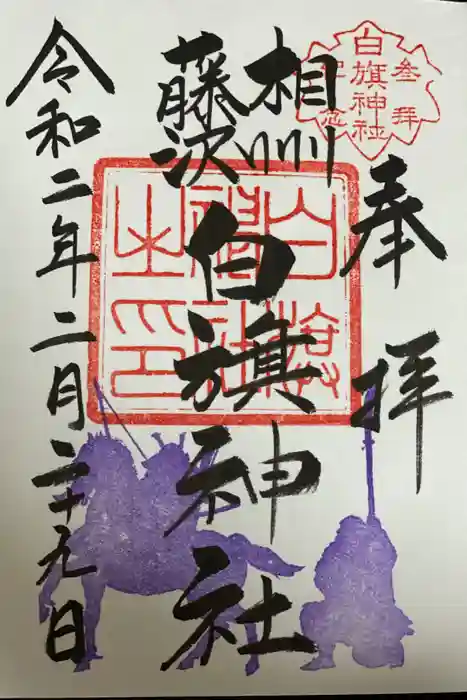 奉拝
白旗神社
参拝
記念
相州
藤沢
白旗神社
白旗
神社
之印
令和二年二月二十九日